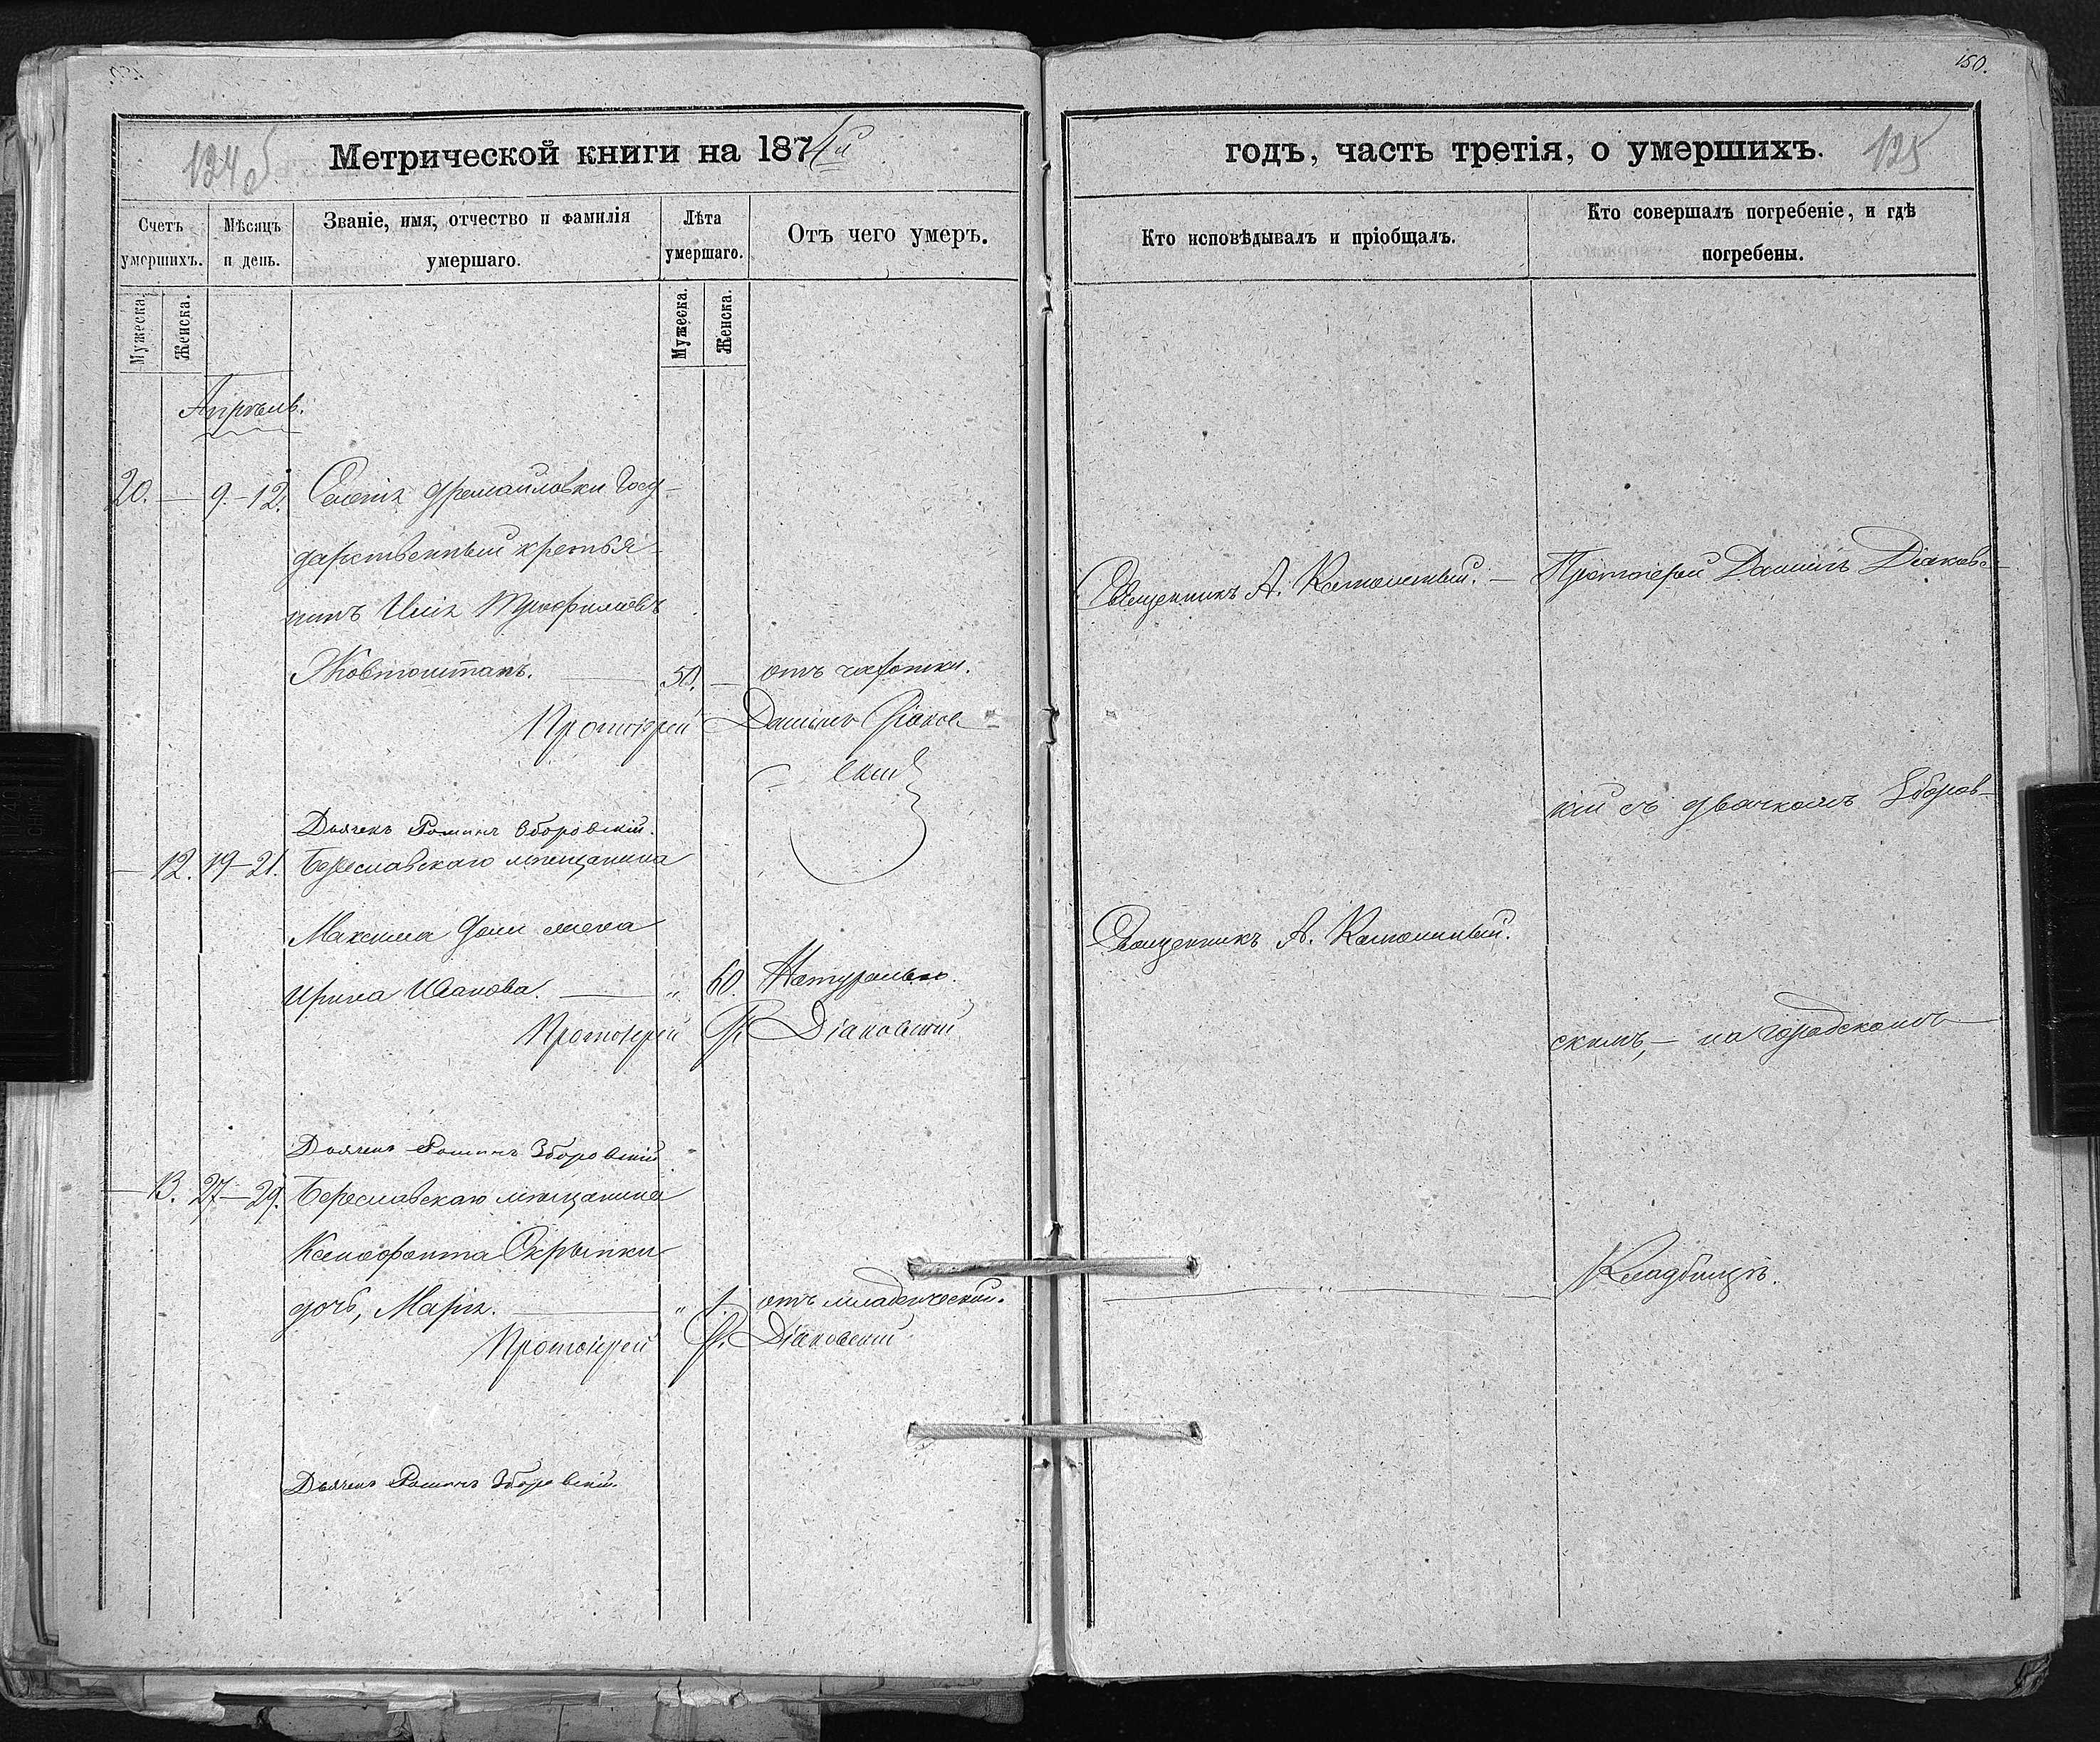 150.
124 об
Метрической книги на 1874й
годъ, часть третія, о умершихъ.
125
Счетъ умершихъ.
Мѣсяцъ и день.
Званіе, имя, отчество и фамилія умершаго.
Лѣта умершаго.
Отъ чего умеръ.
Кто исповѣдывалъ и пріобщалъ.
Кто совершалъ погребеніе, и гдѣ погребены.
Мужеска.
Женска.
Мужеска.
Женска.
Апрѣль.
20. — 9.-12. Селенія Дремайловки Госу-
дарственный крестья-
нинъ Илія Трофимовъ
Жовтоштанъ. — 50. — отъ чахотки.
Протоіерей Даніилъ Діаков-
скій
Дьячекъ Романъ Зборовскій.
— 12. 19-21. Береславскаго мѣщанина
Максима жена
Ирина Иванова. — „ 60. Натурально.
Протоіерей Д. Діаковскій
Дьячекъ Романъ Зборовскій
— 13. 27-29. Береславскаго мѣщанина
Ксенофонта Скрыпки
дочь, Марія. — „ 1. отъ младенческой.
Протоіерей Д. Діаковскій
Дьячекъ Романъ Зборовскій.
Священникъ А. —
Священникъ А.
Протоіерей Даніилъ Діаковс-
кій съ дьячкомъ Зборов-
скимъ, — на городскомъ
Кладбищѣ.